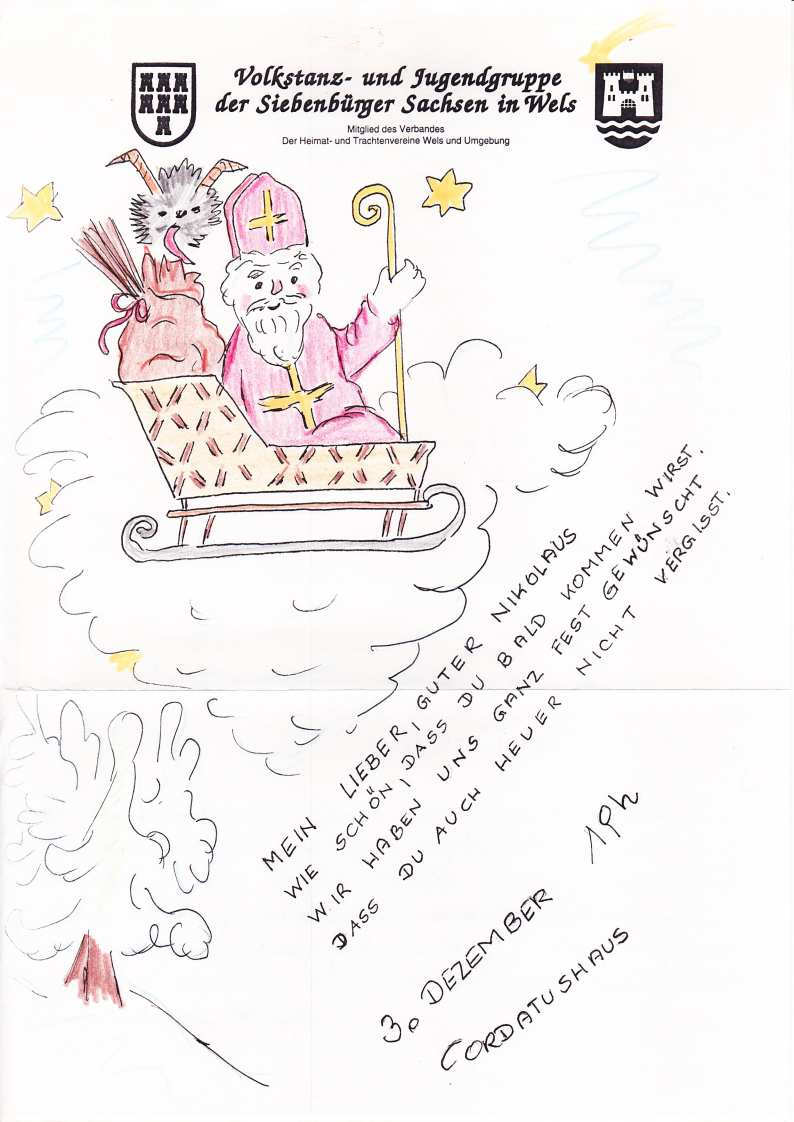 Volkstanz- und Jugendgruppe
der Siebenbürger Sachsen in Wels
Mitglied des Verbandes
Der Heimat- und Trachtenvereine Wels und Umgebung
MEIN LIEBER, GUTER NIKOLAUS
WIE SCHÖN, DASS DU BALD KOMMEN WIRST.
WIR HABEN UNS GANZ FEST GEWÜNSCHT
DASS DU AUCH HEUER NICHT VERGISST.
3. DEZEMBER 19h
CORDATUSHAUS